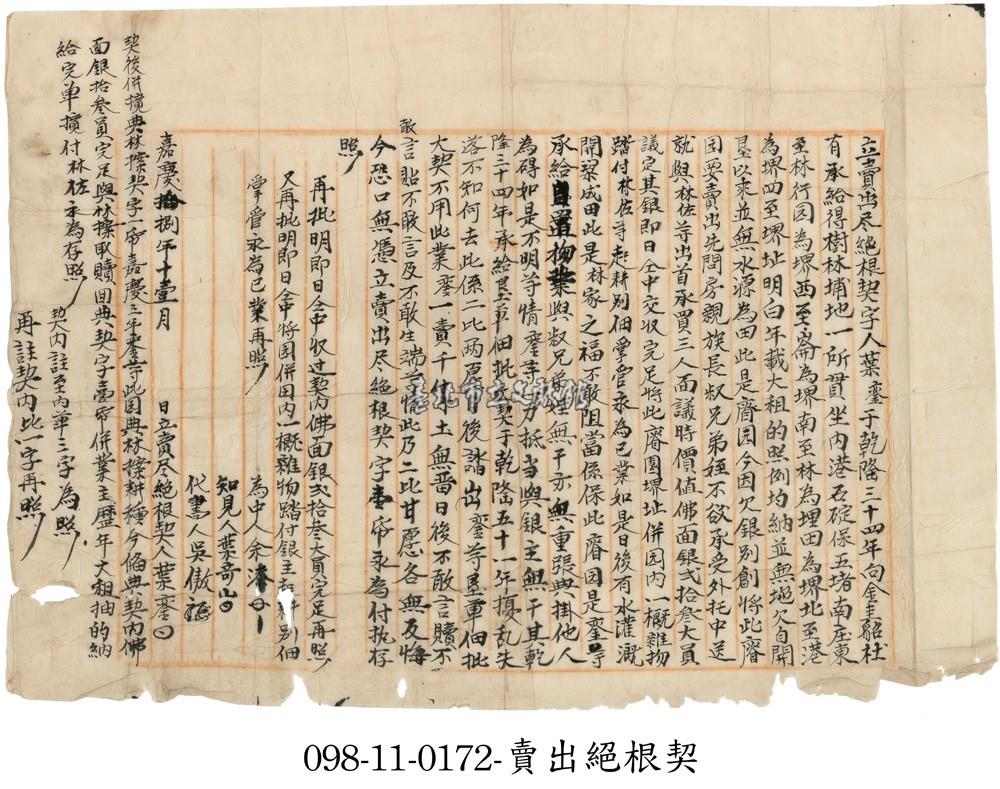 立賣出尽絕根契字人葉鑾于乾隆三十四年向金圭貂社
有承給得樹林埔地一所貫坐內港石碇保五堵南庄東
至林行园為堺西至崙為堺南至林為埋田為堺北至港
為堺四至堺址明白年載大租的照例均納並無拖欠自開
墾以來並無水源為田此是磨园今因欠銀別創將此磨
园要賣出先問房親族長叔兄弟姪不欲承受外托中送
就與林佐等出首承買三人面議時價值佛面銀弍拾叁大員
議定其銀即日仝中交収完足將此磨園堺址併园內一概雜物
踏付林佐等起耕別佃掌管永為己業如是日後有水灌溉
開墾成田此是林家之福不敢阻當係保此磨园是鑾等
承給置物業與叔兄弟姪無干亦無重張典掛他人
為碍如是不明等情鑾等力抵当與銀主無干其乾
隆三十四年承給墾单佃批契于乾隆五十一年擾乱失
落不知何去此係二比両愿年後踏出鑾等墾單佃批
大契不用此業鑾一賣千休寸土無晋日後不敢言贖不
敢言貼不敢言及不敢生端等情此乃二比甘愿各無反悔
今恐口無憑立賣出尽絕根契字壹帋永為付执存
照
再批明即日仝中収过契內佛面銀弍拾叁大員完足再照
又再批明即日仝中將园併园內一概雜物踏付銀主去耕別佃
掌管永為己業再照
為中人余
知見人葉奇山
代書人吳傲
日立賣尽絕根契人葉鑾
嘉慶拾捌年十壹月
契後併擯典林撰契字一帋嘉慶三年鑾等此园典林撰耕種今偹典契內佛
面銀拾叁員完足與林撰取贖回典契字壹帋併業主歷年大租抽的納
給完单擯付林佐永為存照
契內註至內華三字為照
再註契內比一字再照
臺北市立文獻館
098-11-0172-賣出絕根契